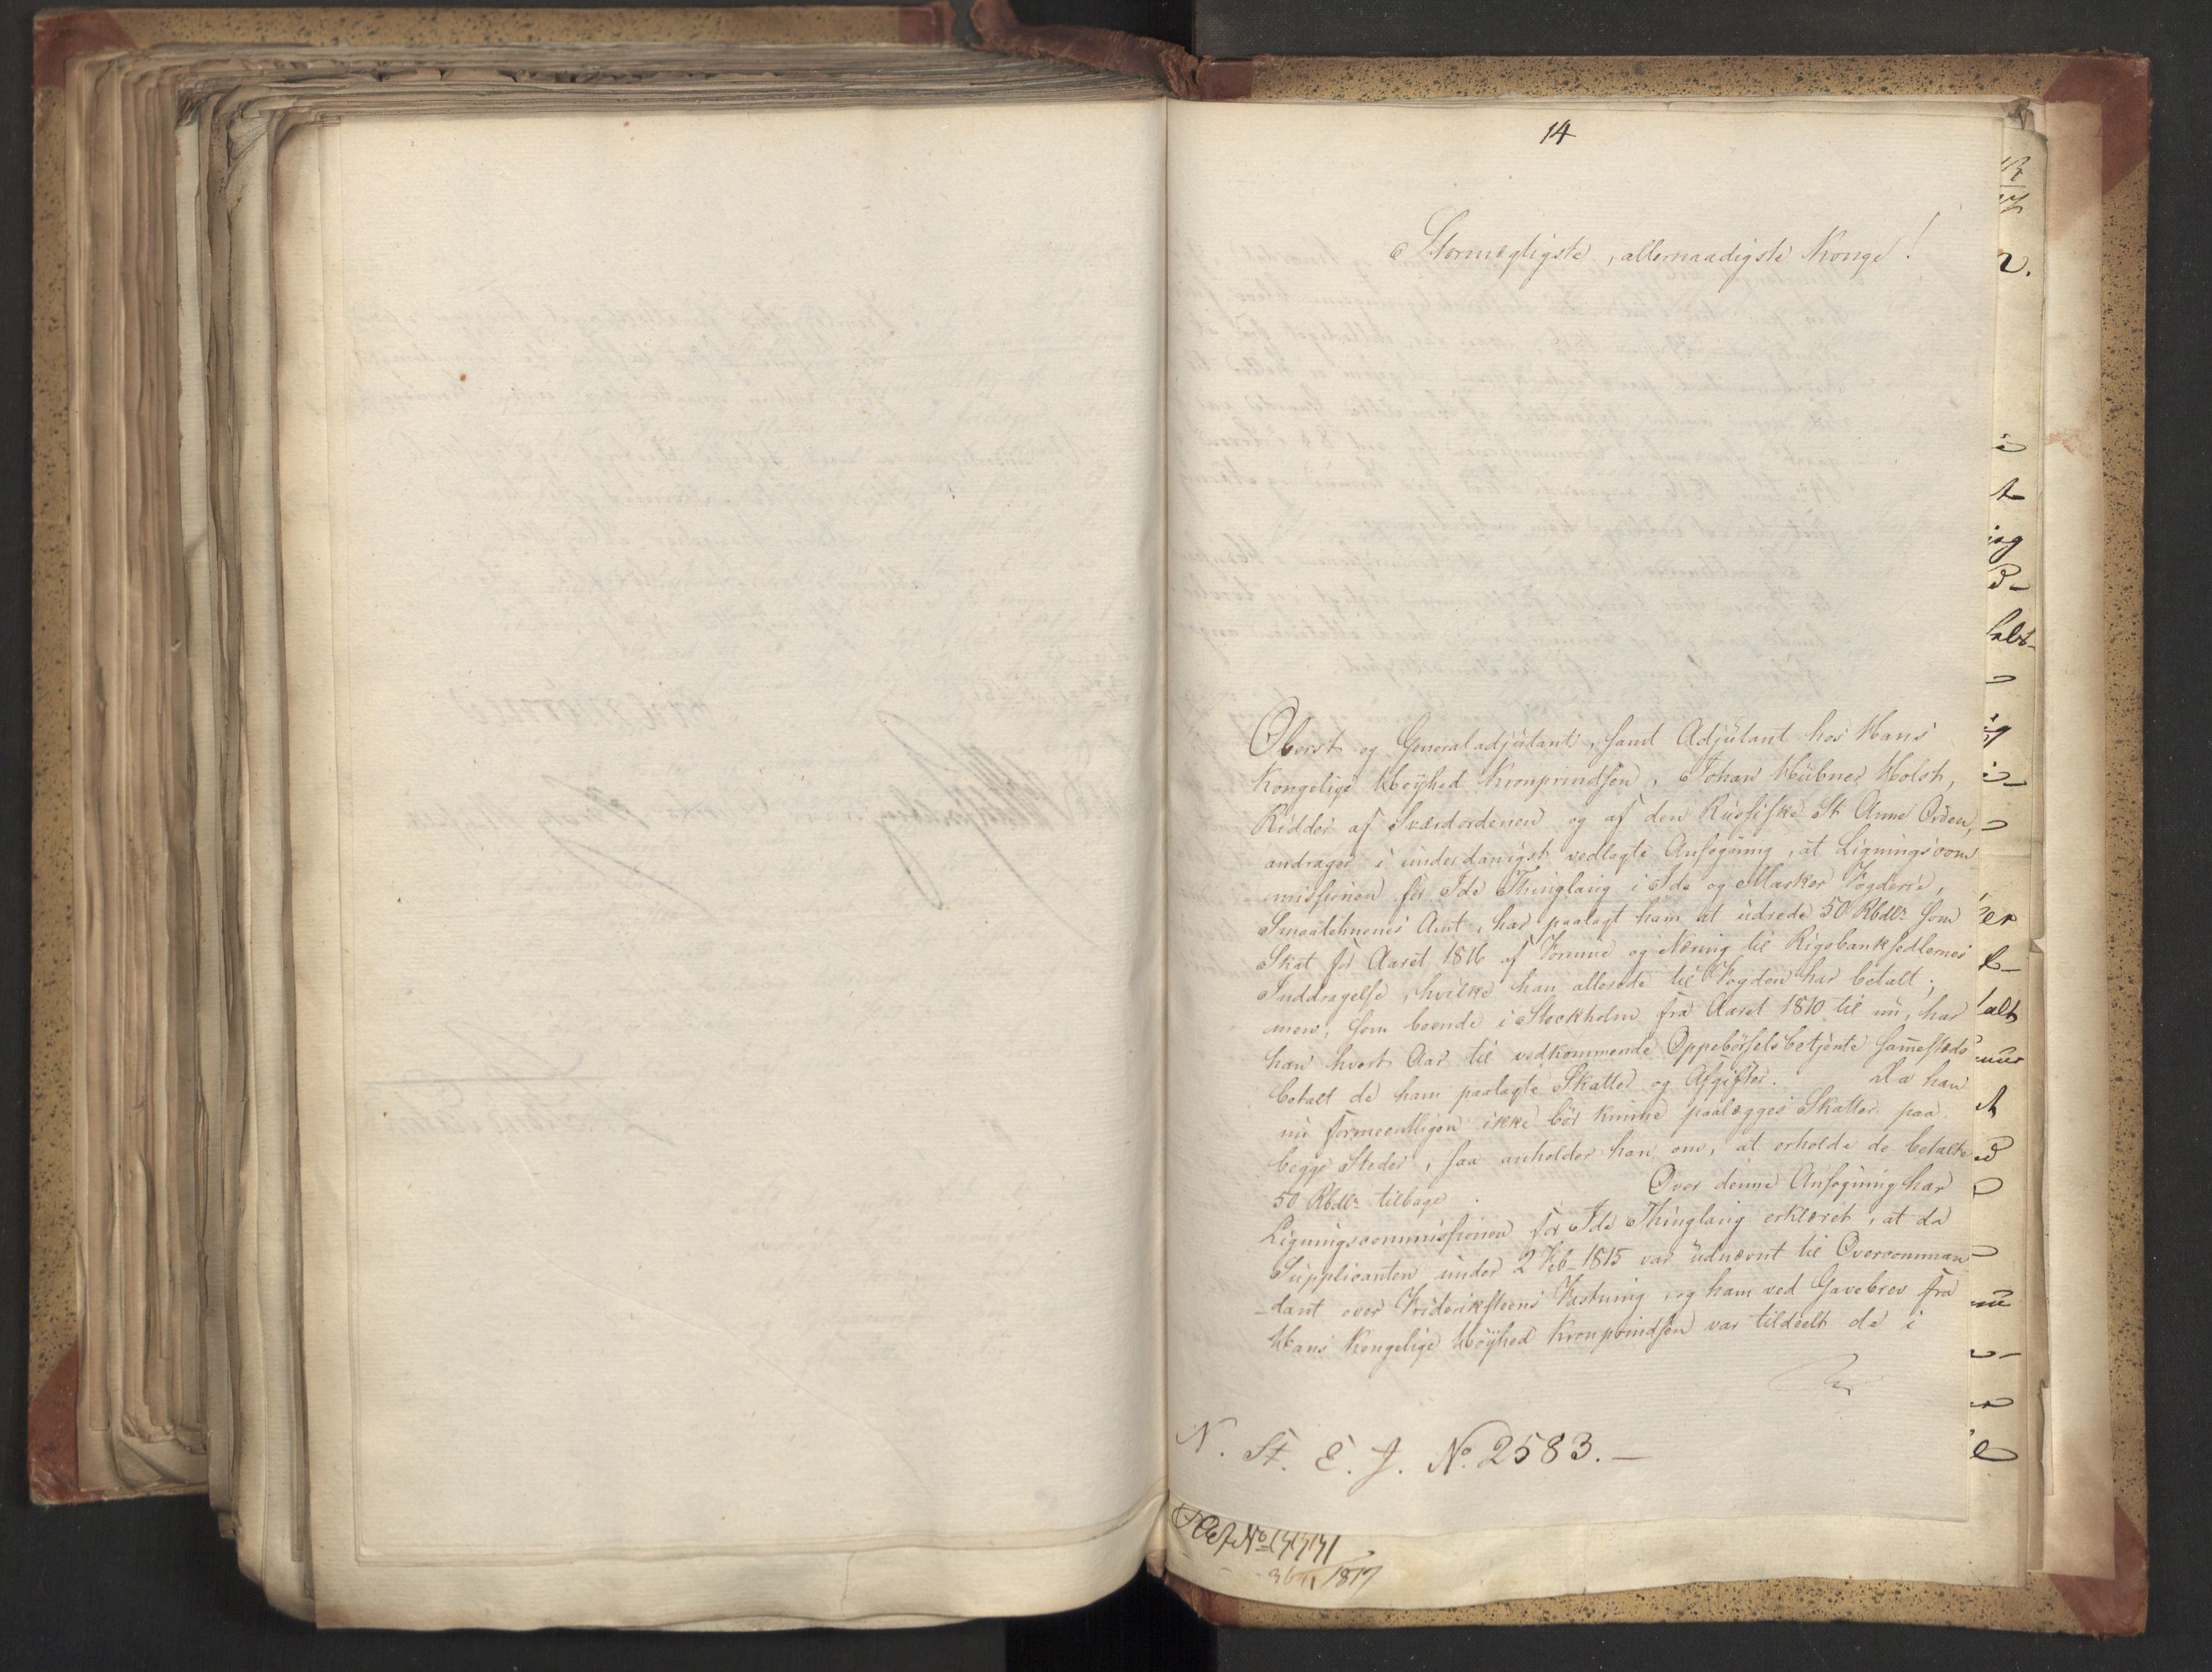 14
Stormægtigste, allernaadigste Konge!
Oberst og Generaladjutant, samt Adjutant hos Hans
Kongelige Høyhed Kronprindsen, Johan Hübner Holst,
Ridder af Sværdordenen og af den Russiske St Anne Orden,
andrager i underdanigst vedlagte Ansøgning, at Ligningscom
missionen for Ide Thinglaug i Ide og Marker Fogderie,
Smaalehnenes Amt, har paalagt ham at udrede 50 Rbdlr som
Skat for Aaret 1816 af Formue og Næring til Rigsbanksedlernes
Inddragelse, hvilke han allerede til Fogden har betalt;
men, som boende i Stockholm fra Aaret 1810 til nu, har
han hvert Aar til vedkommende Oppebørselsbetjente sammesteds
betalt de ham paalagte Skatter og Afgifter. Da han
nu formeentligen ikke bør kunne paalægges Skatter paa
begge Steder, saa anholder han om, at erholde de betalte
50 Rbdlr tilbage. Over denne Ansøgning har
Ligningscommissionen for Ide Thinglaug erklæret, at da
Supplicanten under 2 Feb 1815 var udnævnt til Overcomman
-dant over Frideriksteens Fæstning, og ham ved Gavebrev fra
Hans Kongelige Høyhed Kronprindsen var tildeelt de i
N. St. E. J. No. 2583.—
1817